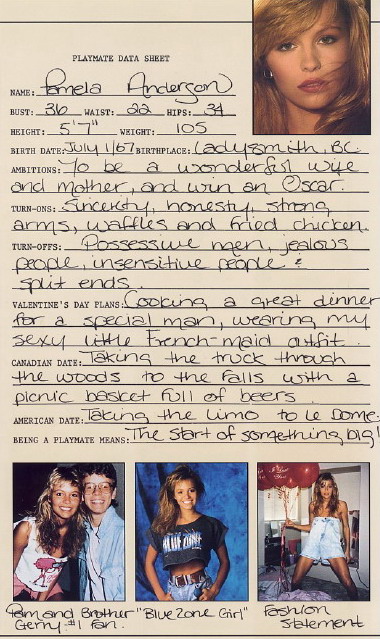 PLAYMATE DATA SHEET
NAME: Pamela Anderson
BUST: 36 WAIST: 22 HIPS: 34
HEIGHT: 5'7" WEIGHT: 105
BIRTH DATE: July 1/67 BIRTHPLACE: Ladysmith, BC.
AMBITIONS: To be a wonderful wife
and mother, and win an Oscar.
TURN-ONS: Sincerity, honesty, strong
arms, waffles and fried chicken.
TURN-OFFS: Possessive men, jealous
people, insensitive people &
split ends.
VALENTINE'S DAY PLANS: Cooking a great dinner
for a special man, wearing my
sexy little French-maid outfit.
CANADIAN DATE: Taking the truck through
the woods to the falls with a
picnic basket full of beers.
AMERICAN DATE: Taking the limo to le Dome.
BEING A PLAYMATE MEANS: The start of something big!
BLUE ZONE
I Love You
Pam and Brother
Gerry #1 fan.
"Blue Zone Girl"
Fashion
Statement